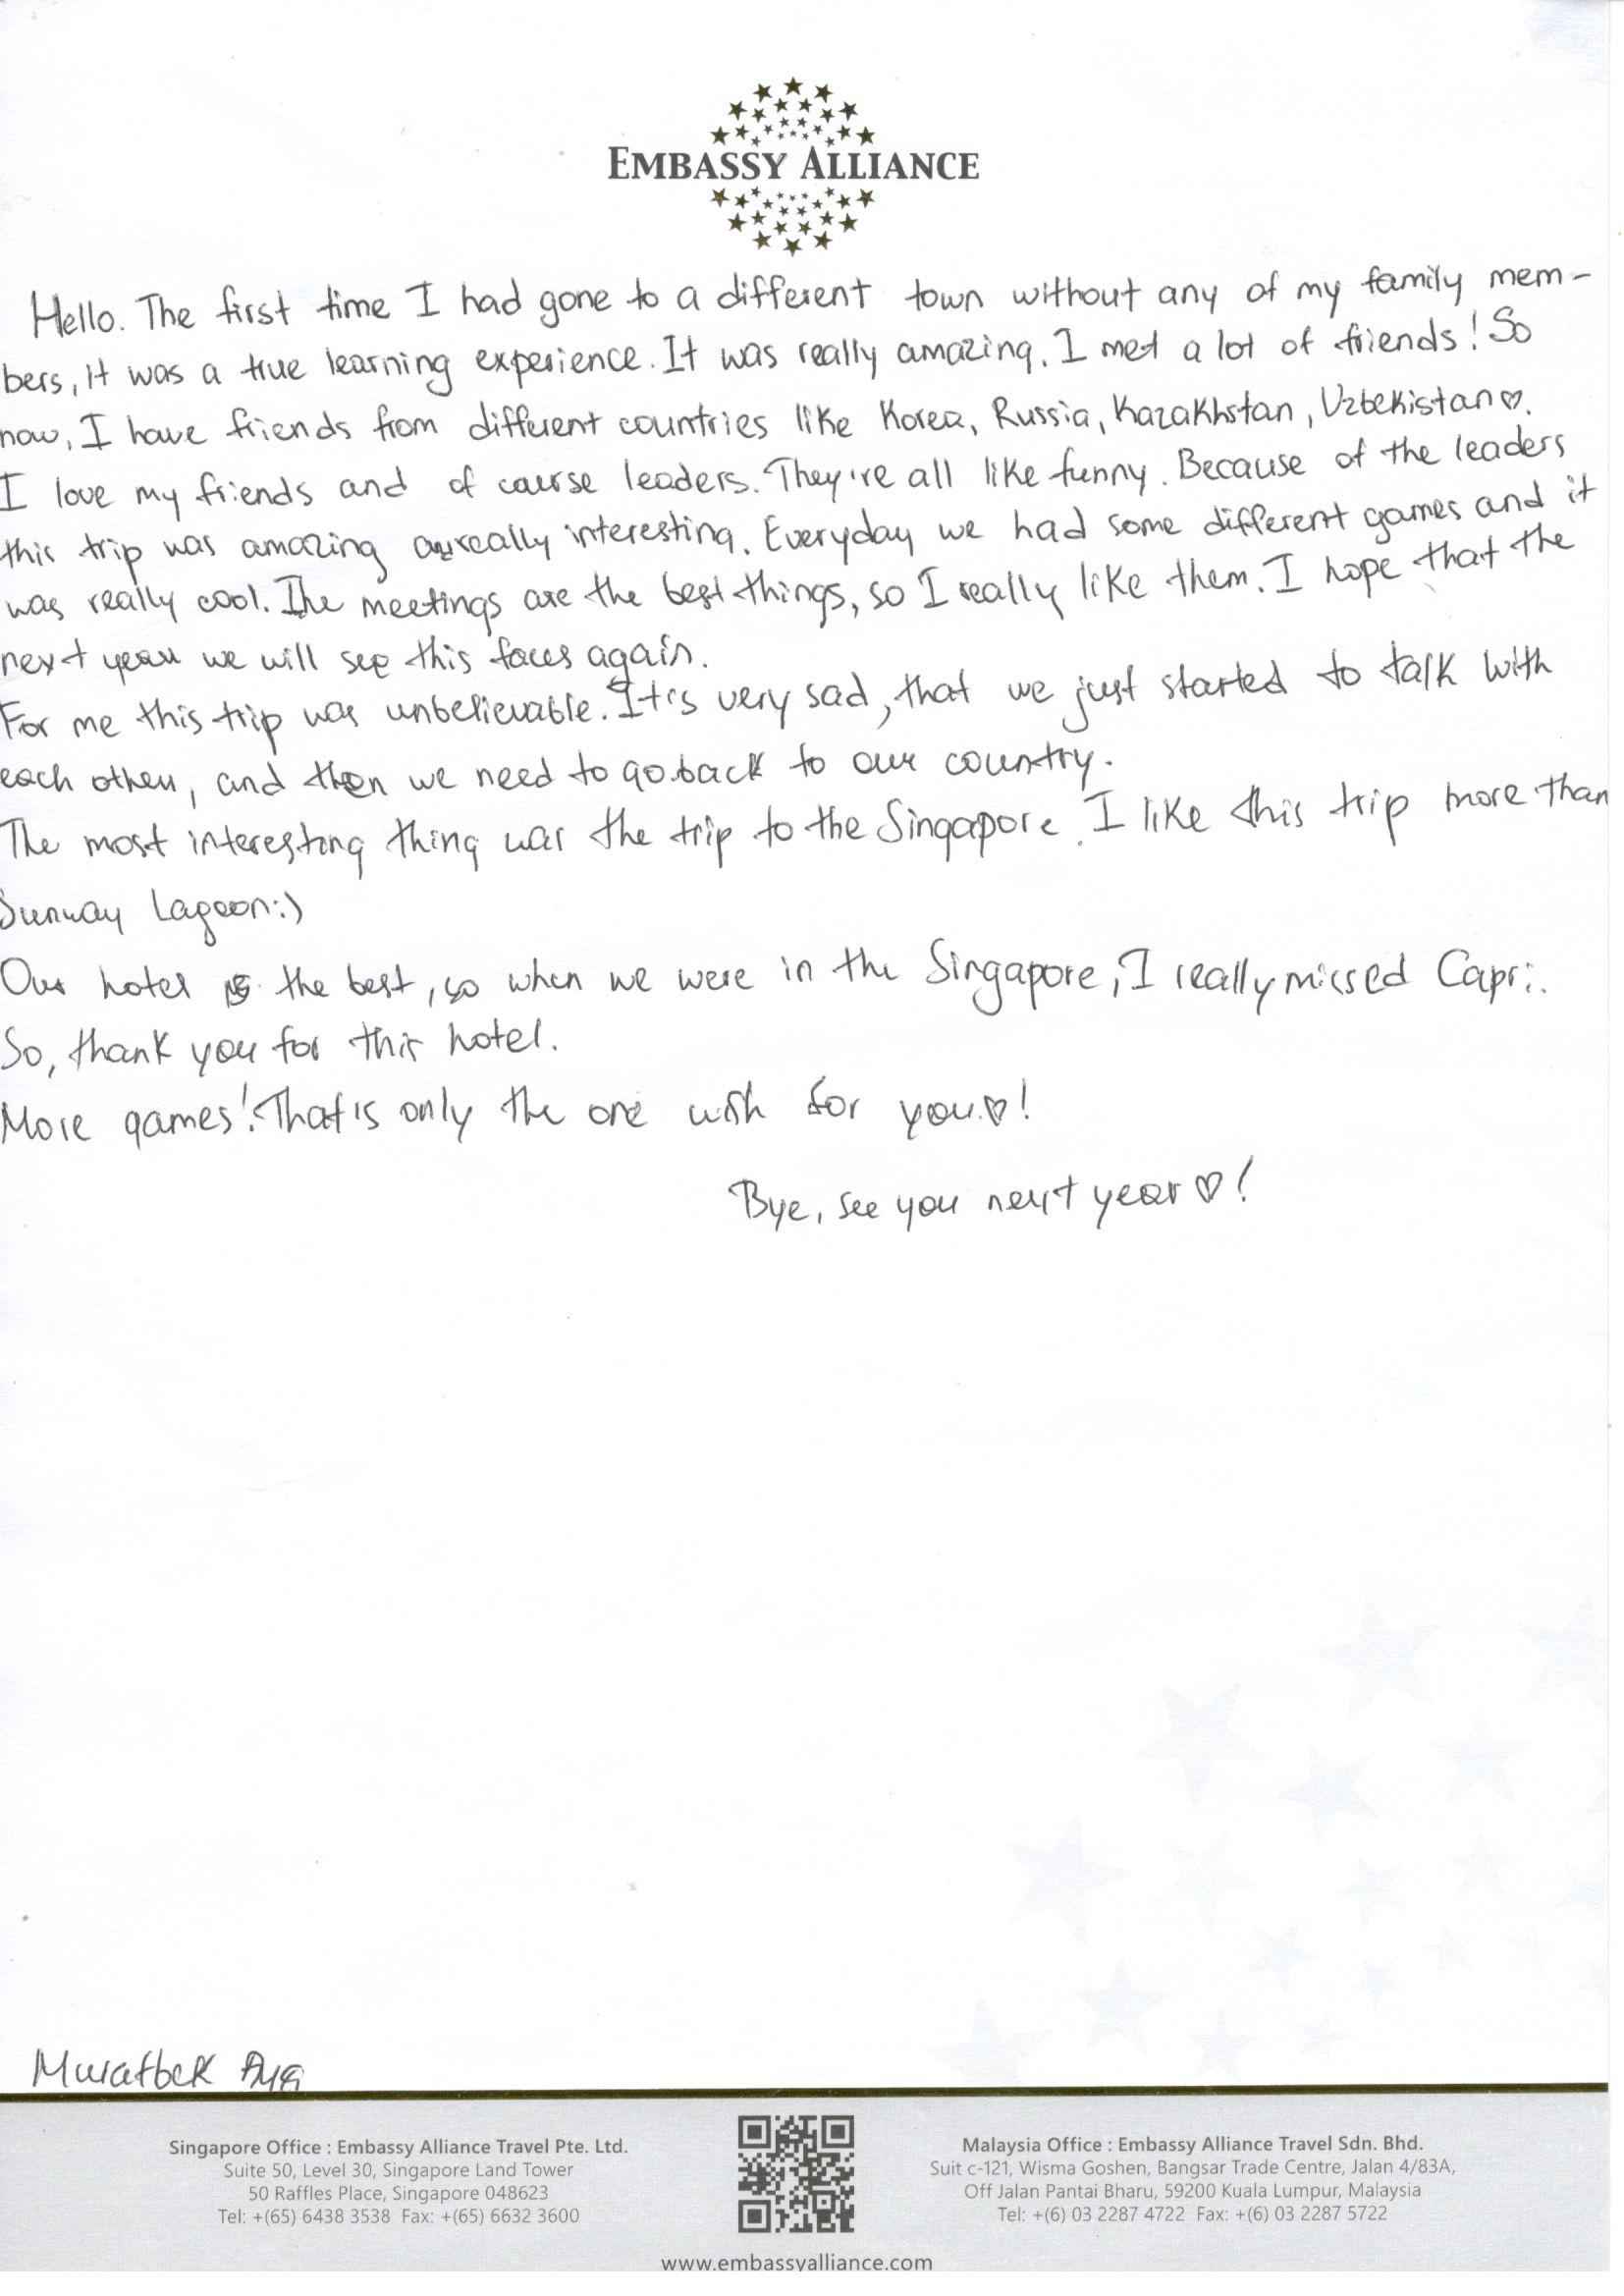 EMBASSY ALLIANCE
Hello. The first time I had gone to a different town without any of my family mem-
bers, it was a true learning experience. It was really amazing. I met a lot of friends! So
now, I have friends from different countries like Korea, Russia, Kazakhstan, Uzbekistan♡.
I love my friends and of course leaders. They're all like funny. Because of the leaders
this trip was amazing really interesting. Everyday we had some different games and it
was really cool. The meetings are the best things, so I really like them. I hope that the
next year we will see this faces again.
For me this trip was unbelievable. It's very sad, that we just started to talk with
each other, and then we need to go back to our country.
The most interesting thing was the trip to the Singapore. I like this trip more than
Sunway Lagoon:)
Our hotel is the best, so when we were in the Singapore, I really missed Capri.
So, thank you for this hotel.
More games! That's only the one wish for you♡!
Bye, see you next year♡!
Muratbek
Singapore Office : Embassy Alliance Travel Pte. Ltd.
Suite 50, Level 30, Singapore Land Tower
50 Raffles Place, Singapore 048623
Tel: +(65) 6438 3538 Fax: +(65) 6632 3600
Malaysia Office : Embassy Alliance Travel Sdn. Bhd.
Suit c-121, Wisma Goshen, Bangsar Trade Centre, Jalan 4/83A,
Off Jalan Pantai Bharu, 59200 Kuala Lumpur, Malaysia
Tel: +(6) 03 2287 4722 Fax: +(6) 03 2287 5722
www.embassyalliance.com